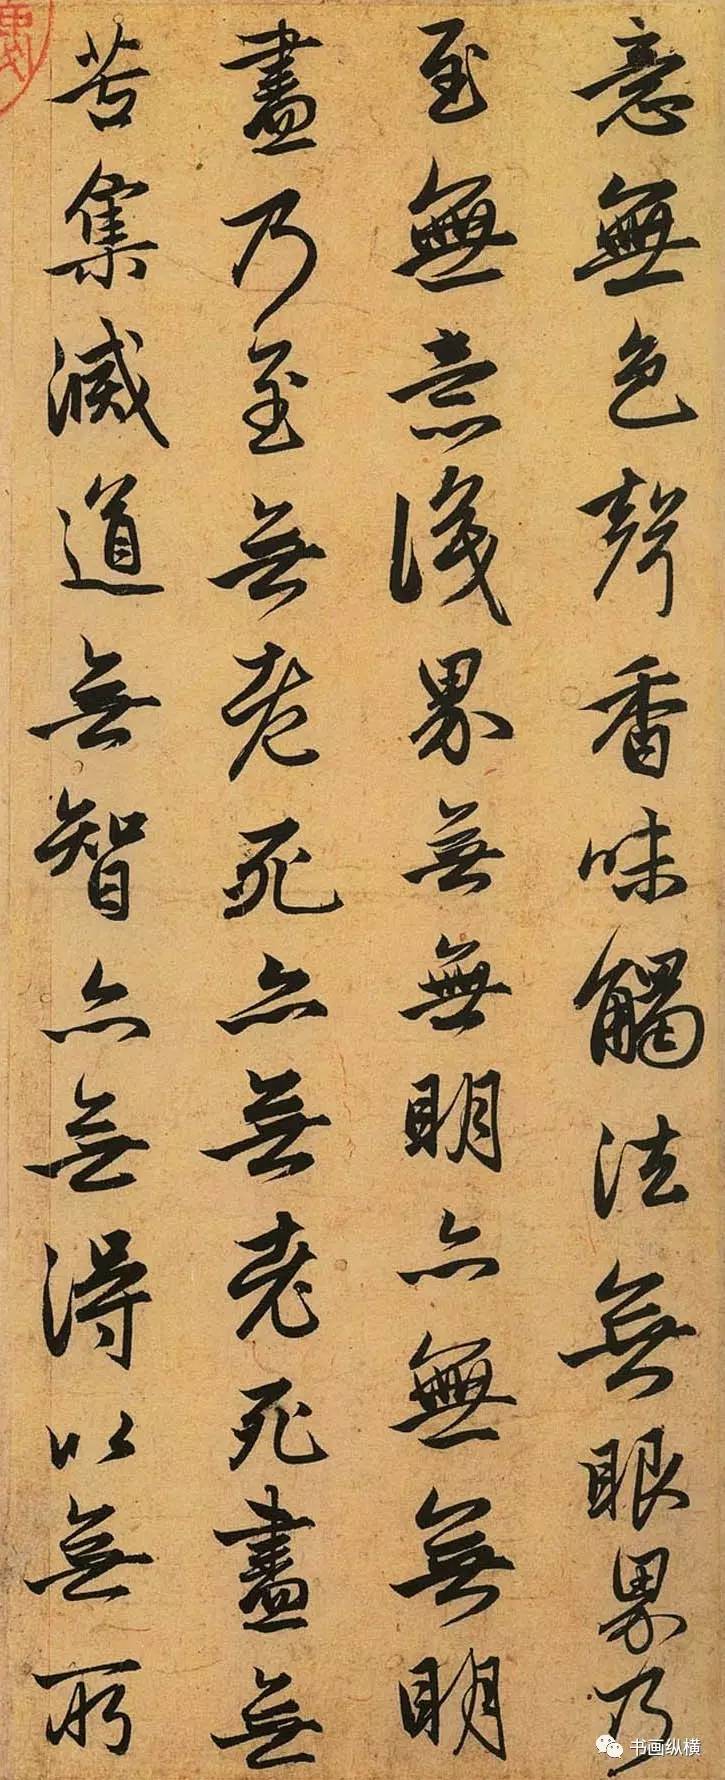 意無色聲香味觸法無眼界乃
至無意識界無無明亦無無明
盡乃至無老死亦無老死盡無
苦集滅道無智亦無得以無所
书画纵横